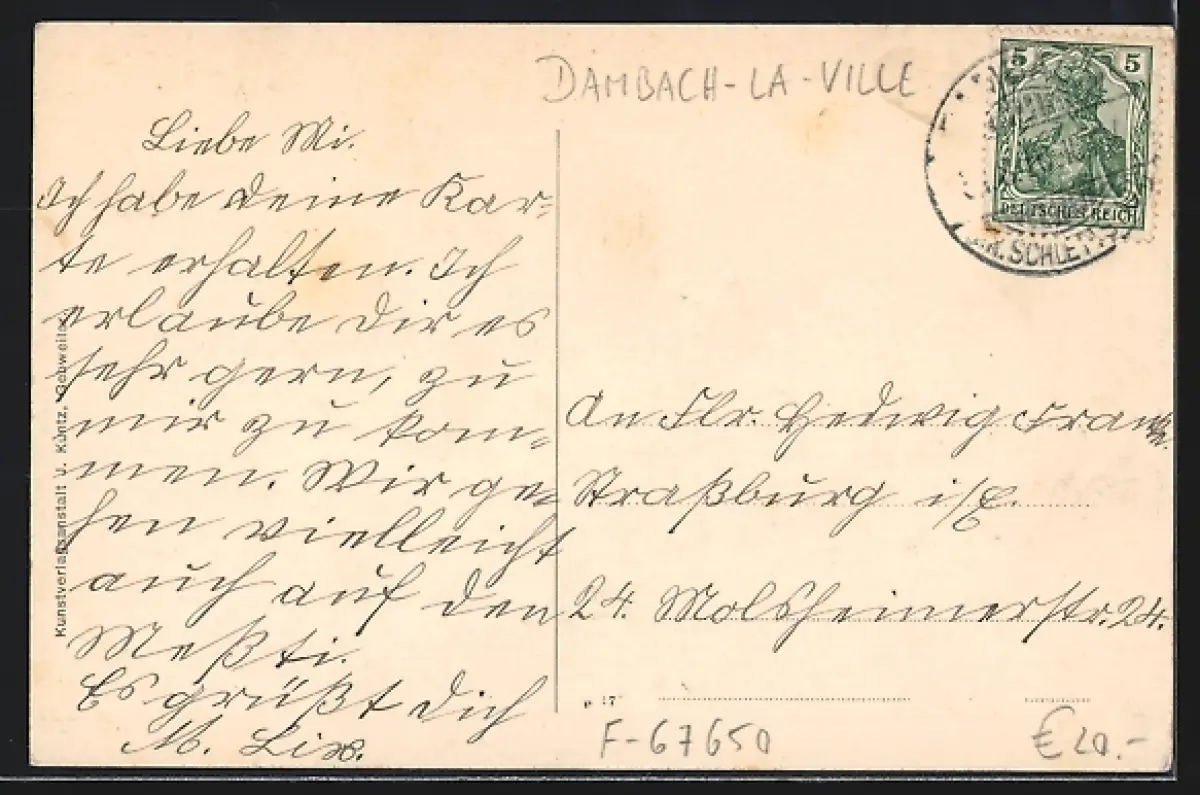 DAMBACH-LA-VILLE
5 5
DEUTSCHES REICH
SCHLET
Liebe Mi.
Ich habe deine Kar-
te erhalten. Ich
erlaube dir es
sehr gern, zu
mir zu kom-
men. Wir ge-
hen vielleicht
auch auf den
Meßti.
Es grüßt dich
M. Lix.
Kunstverlagsanstalt J. Kuntz, Gebweiler
An Flr. Hedwig
Straßburg i/E.
24. Molsheimerstr. 24.
F-67650
€ 20.-